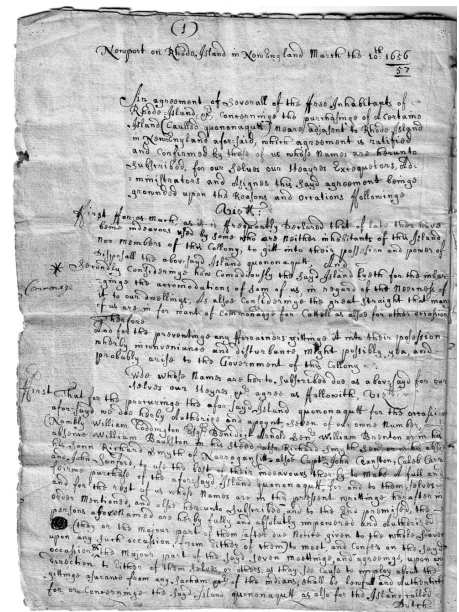 (1)
Newport on Rhode Island in New England March the 10th: 1656
57
An agreement of Severall of the free Inhabitants of
Rhode Island &c, Concerninge the purchasinge of a Certaine
Island (Caulled quononagutt) Neare adjasent to Rhode Island
in New England afor said, which agreement is ratified
and Confirmed by those of us whose Names are herunto
Subscribed, for our Selves our Heayres Exequetors, Ad:
ministrators and Assignes this sayd agreement beinge
grownded upon the Reasons and
followinge
first
as it is frequently Declared that of late ther have
beene indeavors used by some who are Neither inhabitants of this Island
Nor Members of this Collony, to gitt into their possession and power of
the abovesayd Island quononagutt. And
Secondly Consideringe how Comodiously the sayd Island lyeth for the inlar:
ginge the accomodations of som of us in regard of the Neerness of
it to our dwellings, As allsoe Consideringe the great straight that many
of us are in for want of Commonage for Cattell as allsoe for other occasions
*
Commonage
Therfore
And for the preventinge any forrainers gittinge it into their possession
wherby inconveniance and disturbants Might possibly, yea, and
probably arise to the Government of this Collony
Wee whose Names are herto Subscribed doe as above sayd for our
selves our Heayres &c agree as followith.
first That for the procuringe the afor sayd Island quononagutt for the occasion
afor sayd we doe herby Autherise and apoynt Seven of our owne Number,
(Namly William Coddington Esqr Benidict Arnold Senr William Brenton or in his
absence William Baulston
Richard Smyth Senr or in his absence
his sonn Richard Smyth of Narragansitt, allsoe Capt: John Cranston, Caleb Carr
and John Sanford, to use the best of their indeavours therby to Make a full and
firme purchase of the afor sayd Island quononagutt for and to them selves
and for the rest of us whose Names are in this pressent writtinge herafter in
order Mentioned, and allsoe herunto subscribed, and to the End premised, the
persons above Named are herby fully and absolutly impowred and Autherised
(they or the Major part of them) after due Notice given to the whole Seaven
upon any such occasion (from Either of them) to meet and Confer on the sayd
occasion; the Major part of the sayd Seven meettinge and agreeinge, upon any
Conclusion to Either of them selves or others, as they see Cause to imploy about the
gittinge asurance from any
of the Indians, shall be lawfull and Authentick
for or Concerninge the sayd Island quononagutt as allso for the Island called
Dutche